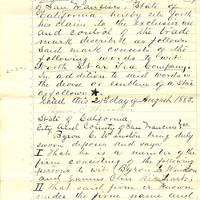 of San Francisco, State of
California, hereby sets forth
his claim to the exclusive
and control of the trade
mark described as follows.
Said mark consists of the
following words to wit:
North Star Tea Company.
In addition to said words is
the device or emblem of a Star
as follows ★
Dated this 21st day of August 1880.
State of California,
City And County of San Francisco
Byron G. Winston being duly
sworn deposes and says
I That he is a member of the
firm consisting of the following
persons to wit Byron G. Winston
and James
II That said firm is known
under the firm name and